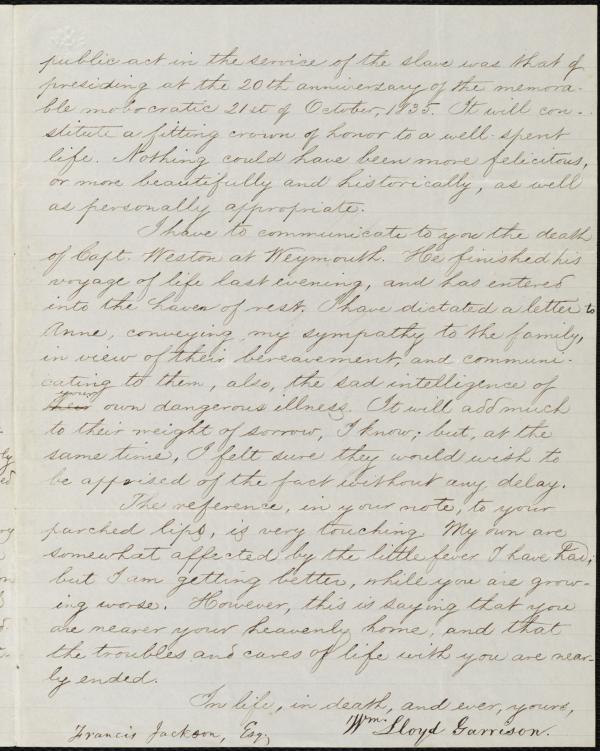 public act in the service of the slave was that of
presiding at the 20th anniversary of the memora-
ble mobocratic 21st of October, 1835. It will con-
stitute a fitting crown of honor to a well-spent
life. Nothing could have been more felicitous,
or more beautifully and historically, as well
as personally appropriate.
I have to communicate to you the death
of Capt. Weston at Weymouth. He finished his
voyage of life last evening, and has entered
into the haven of rest. I have dictated a letter to
Anne, conveying my sympathy to the family,
in view of their bereavement, and communi-
cating to them, also, the sad intelligence of
your
their own dangerous illness. It will add much
to their weight of sorrow, I know; but, at the
same time, I felt sure they would wish to
be apprised of the fact without any delay.
The reference, in your note, to your
parched lips, is very touching. My own are
somewhat affected by the little fever I have had;
but I am getting better, while you are grow-
ing worse. However, this is saying that you
are nearer your heavenly home, and that
the troubles and cares of life with you are near-
ly ended.
In life, in death, and ever, yours,
Wm. Lloyd Garrison.
Francis Jackson, Esq.